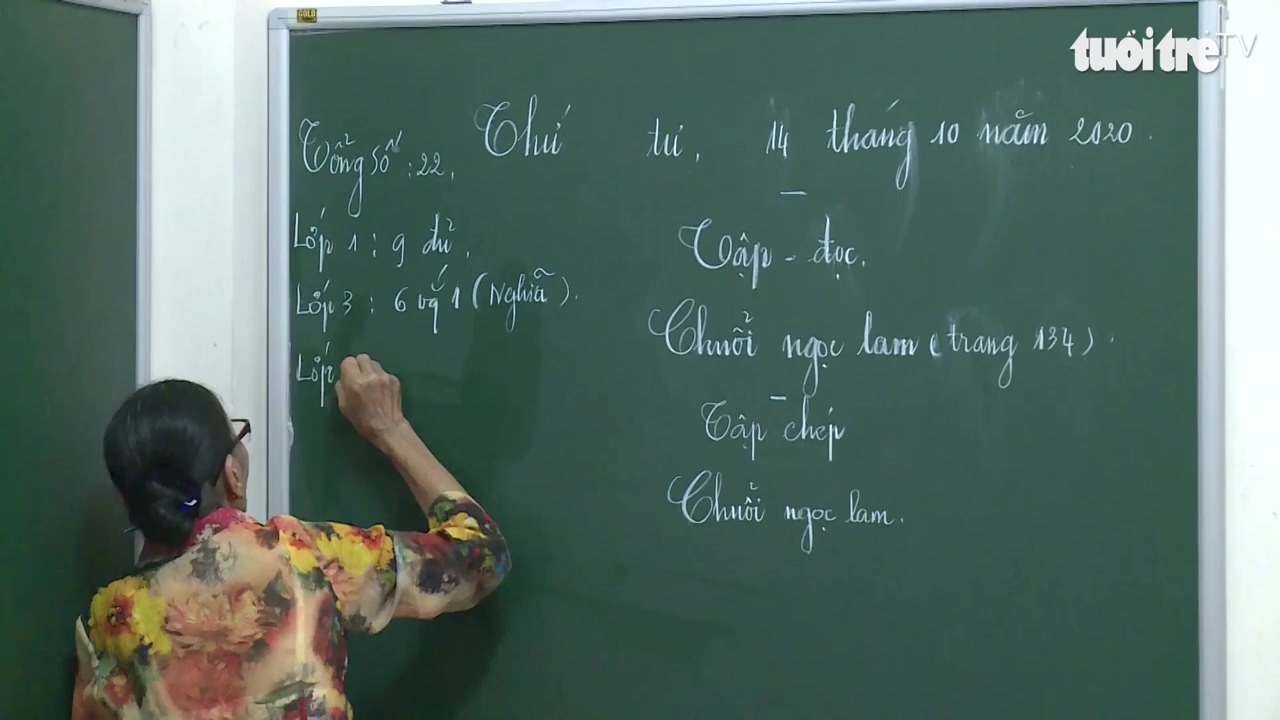 GOLD
tuổi trẻ TV
Thứ tư, 14 tháng 10 năm 2020.
Tổng Số : 22.
Lớp 1 : 9 đủ.
Lớp 3 : 6 vắ 1 (Nghĩa).
Lớp
Tập - đọc.
Chuỗi ngọc lam (trang 134).
Tập chép
Chuỗi ngọc lam.